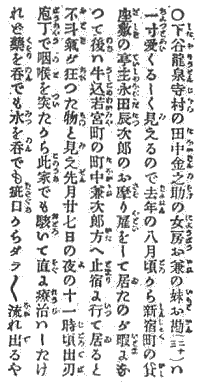 〇下谷龍泉寺村の田中金之助の女房お兼の妹お勘（三十）ハ
一寸愛くるしく見えるので去年の八月頃から新宿町の貸
座敷の亭主永田辰次郎のお摩り雇をして居たのが暇よな
つて後い牛込若宮町の町中兼次郎方へ止宿よ行て居ると
不斗氣が狂つた物と見え先月廿七日の夜の十一時頃出刃
庖丁で咽喉を突たから此家でも駭いて直よ療治ハしたけ
れど藥を呑でも氷を呑でも疵口からダラ〱流れ出るや